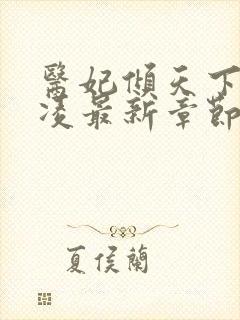 醫妃傾天下
凌最新章節
夏侯蘭